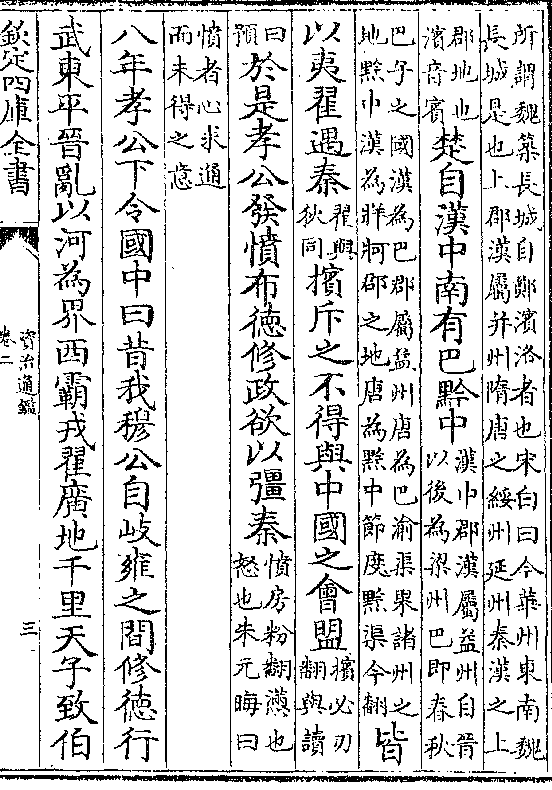 所謂魏築長城自鄭濱洛者也宋白曰今華州東南魏
長城是也上郡漢屬并州隋唐之綏州延州秦漢之上
郡地也
濱音賓
楚自漢中南有巴黔中
漢中郡漢屬益州自晉
以後為梁州巴即春秋
巴子之國漢為巴郡屬益州唐為巴渝渠果諸州之
地黔中漢為牂牁郡之地唐為黔中節度黔渠今翻
皆
以夷翟遇秦
翟與
狄同
擯斥之不得與中國之會盟
擯必刃
翻與讀
曰
預
於是孝公發憤布德修政欲以彊秦
憤房粉翻懣也
怒也朱元晦曰
憤者心求通
而未得之意
八年孝公下令國中曰昔我穆公自岐雍之間修德行
武東平晉亂以河為界西霸戎翟廣地千里天子致伯
欽定四庫全書
資治通鑑
卷二
三